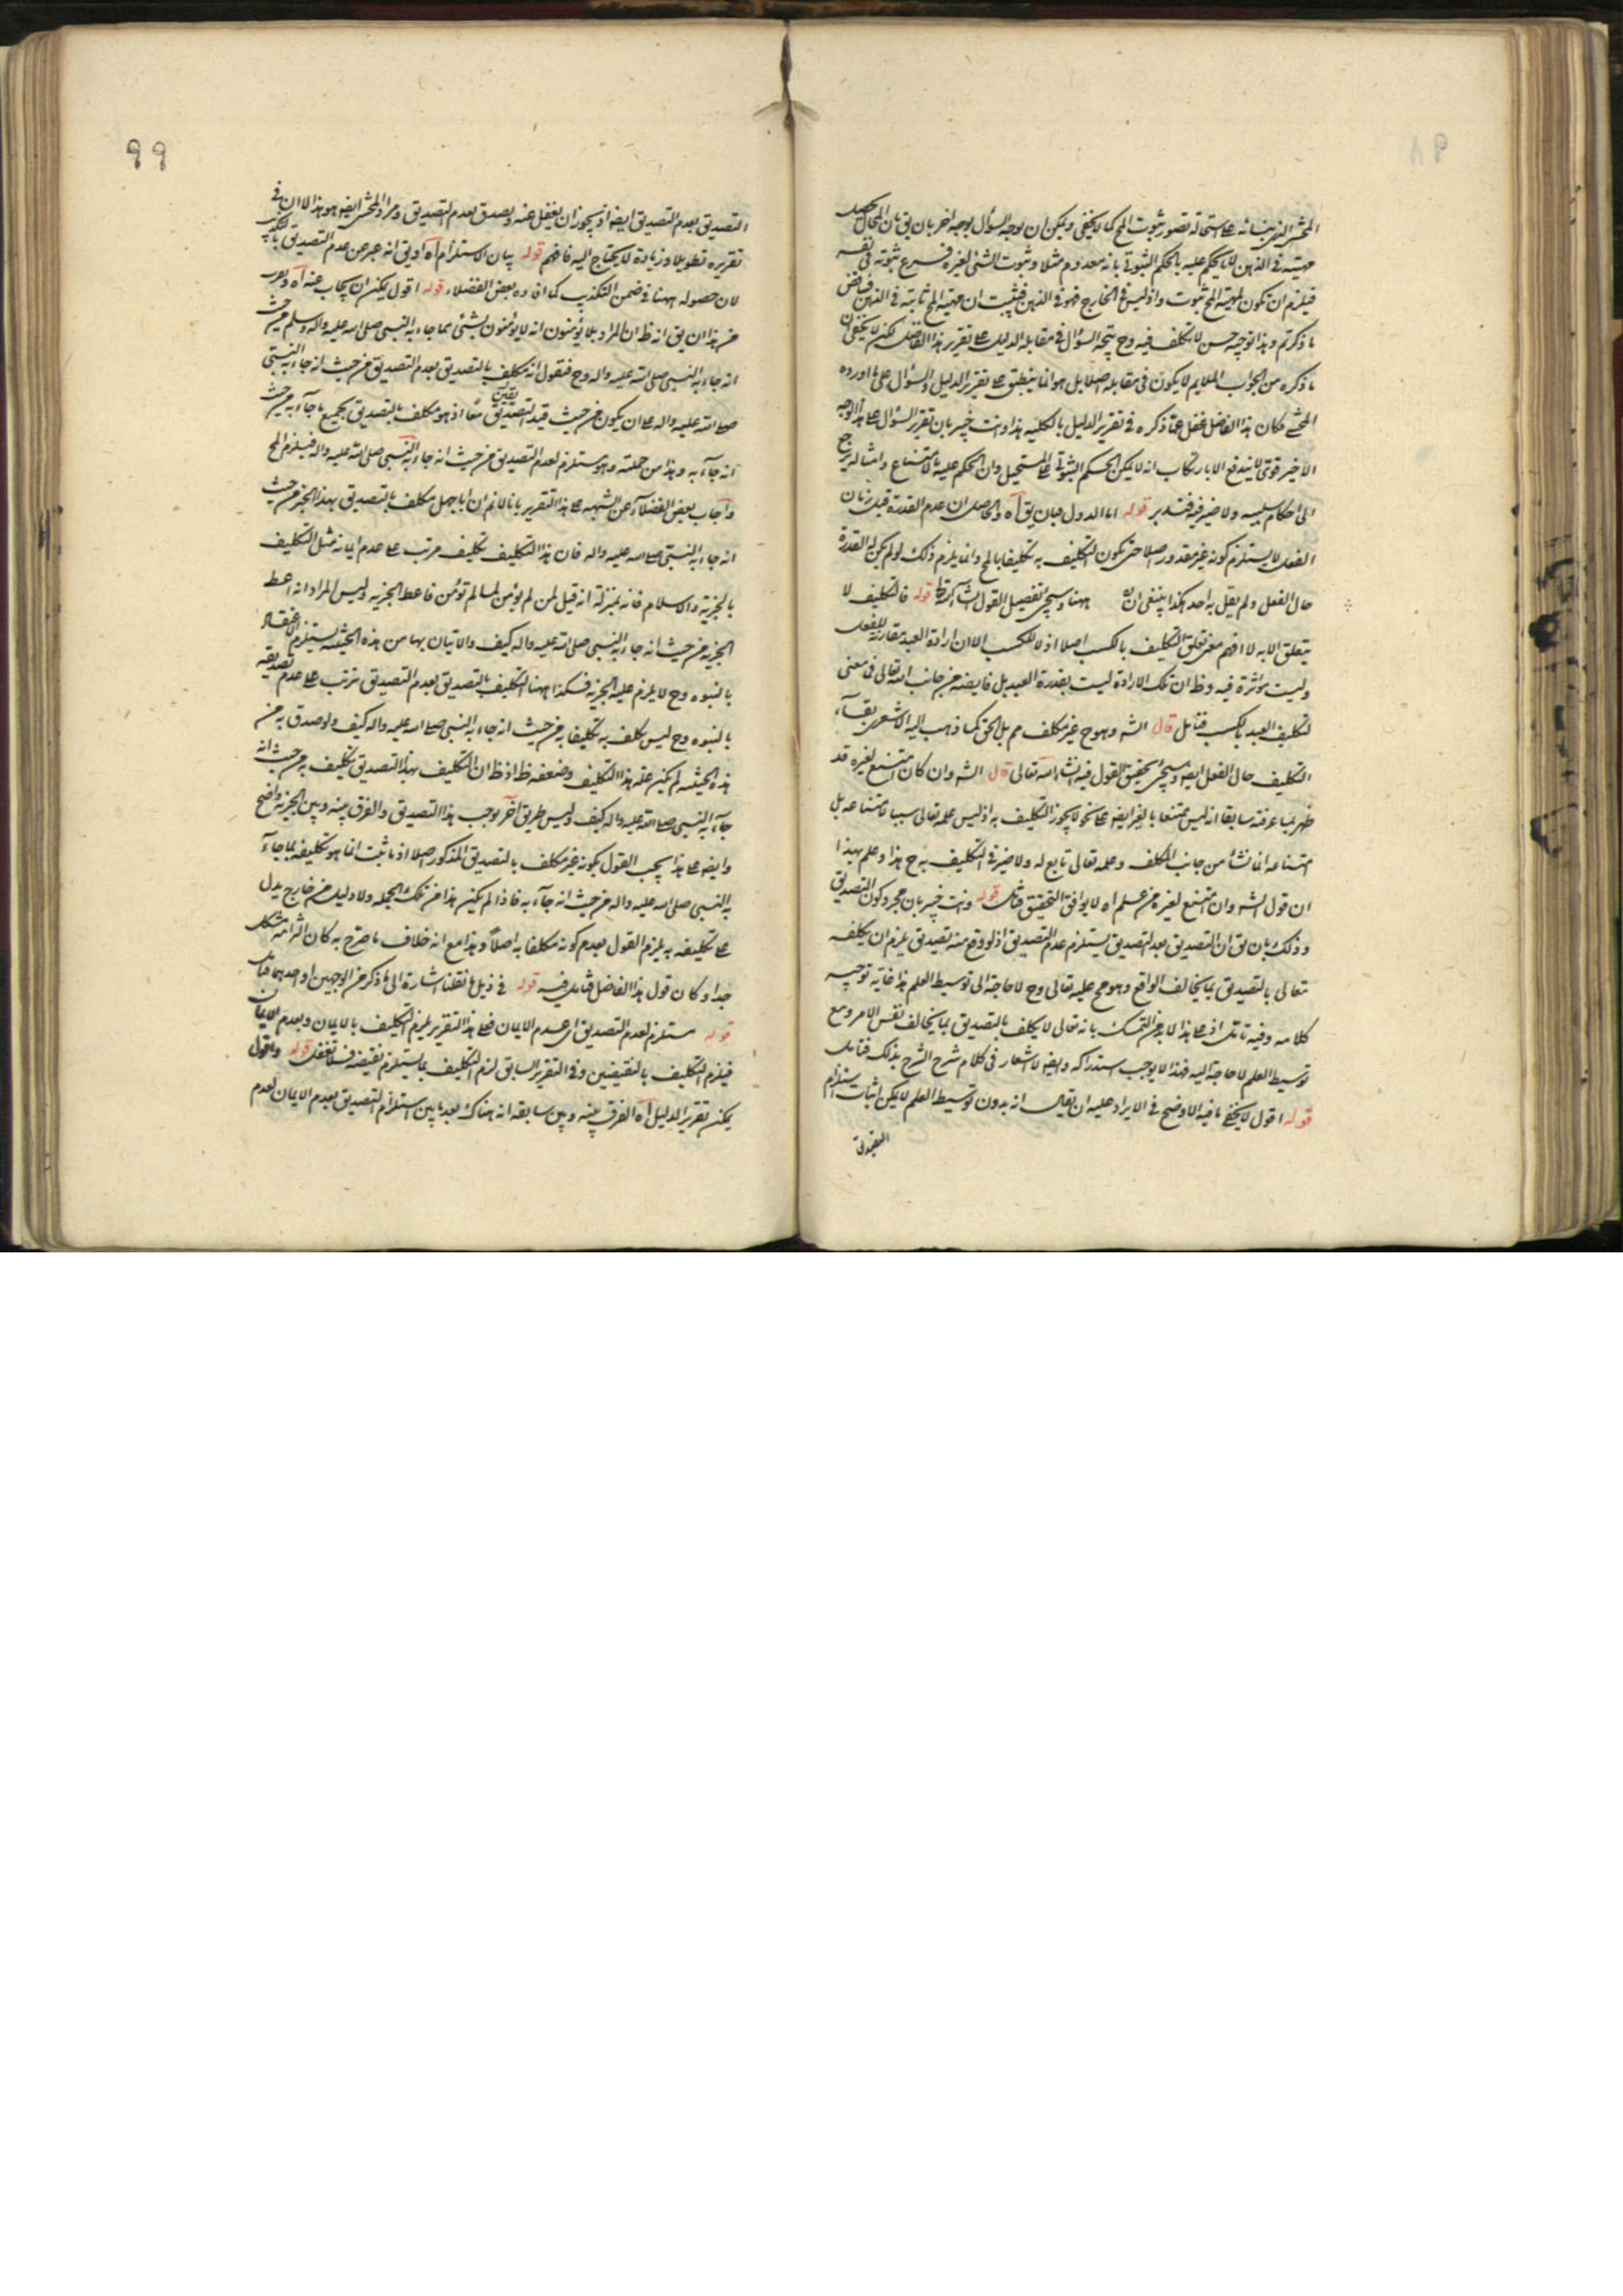 المحشى الذى بنائه على استحالة تصور ثبوت المح كما لا يخفى ويمكن ان يوجه السؤال بوجه اخر بان يق بان المحال تحصل
مهيته فى الذهن لانا نحكم عليه بالحكم الثبوتى بانه معدوم مثلا وثبوت الشئ لغيره فرع ثبوته فى نفسه
فيلزم ان تكون لمهية المح ثبوت واذ ليس فى الخارج فهو فى الذهن فيثبت ان مهية المح ثابتة فى الذهن
ما ذكرتم وهذا توجيه حسن لا تكلف فيه وح يتجه السؤال فى مقابلة الدليل على تقرير هذا الفاضل لكن لا يخفى ان
ما ذكره من الجواب الملايم لا يكون فى مقابله اصلا بل هو انما ينطبق على تقرير الدليل والسؤال على ما اورده
المحشى فكان هذا الفاضل غفل عما ذكره فى تقرير الدليل بالكلية هذا وانت خبير بان تقرير السؤال على هذا الوجه
الاخير قوى لا يندفع الا بارتكاب انه لا يمكن الحكم الثبوتى على المستحيل وان الحكم عليه بالامتناع وامثاله يرجع
الى احكام سلبيه ولا ضير فيه فتدبر قوله اما الاول فبان يق اه والحاصل ان عدم القدرة قبل زمان
الفعل لا يستلزم كونه غير مقدور اصلا حتى يكون التكليف به تكليفا بالمح وانما يلزم ذلك لو لم يكن له القدرة
حال الفعل ولم يقل به احد هكذا ينبغى ان ههنا وسيجئ تفصيل القول انشاء الله تعالى قوله فالتكليف لا
يتعلق الا به لا افهم معنى تعلق التكليف بالكسب اصلا اذ لا كسب الا ان ارادة العبد مقارنة للفعل
وليست مؤثرة فيه وظ ان تلك الارادة ليست بقدرة العبد بل فايضة من جانب الله تعالى فما معنى
تكليف العبد بالكسب فتامل قال الشه وهو ح غير مكلف مم بل الحق كما ذهب اليه الاشعرى بقاء
التكليف حال الفعل ايضا وسيجئ تحقيق القول فيه انشاء الله تعالى قال الشه وان كان ممتنع لغيره قد
ظهر بما عرفته سابقا انه ليس ممتنعا بالغير ايضا على نحو لا يجوز التكليف به اذ ليس علمه تعالى سببا لامتناعه بل
امتناعه انما نشأ من جانب المكلف وعلمه تعالى تابع له ولا ضير فى التكليف به ح هذا وعلم بهذا
ان قول الشه وان امتنع لغيره من علم اه لا يوافق التحقيق فتامل قوله وانت خبير بان مجرد كون التصديق
وذلك بان يق ان التصديق بعدم التصديق يستلزم عدم التصديق اذ لو وقع منه تصديق يلزم ان يكلفه
تعالى بالتصديق بما يخالف الواقع وهو مح عليه تعالى وح لا حاجة الى توسيط العلم هذا غاية توجيه
كلامه وفيه تامل اذ على هذا لا بد من التمسك بانه تعالى لا يكلف بالتصديق بما يخالف نفس الامر ومع
توسيط العلم لا حاجة اليه فهذا لا يوجب استدراكه وايضا لا اشعار فى كلام شرح الشرح بذلك فتامل
قوله اقول لا يخفى ما فيه الاوضح فى الايراد عليه ان يقال انه بدون توسيط العلم لا يمكن اثبات استلزام
التصديق
٩٩
التصديق بعدم التصديق ايضا اذ يجوز ان يغفل عنه ويصدق بعدم التصديق ومراد المحشى ايضا هو هذا الا ان فى
تقريره تطويلا وزيادة لا يحتاج اليه فافهم قوله بيان الاستلزام اه اذ يق انه عبر عن عدم التصديق بالتكذيب
لان حصوله ههنا فى ضمن التكذيب كما افاده بعض الفضلاء قوله اقول يمكن ان يجاب عنه اه
من هذا ان يق انه ظ ان المراد بلا يؤمنون انه لا يؤمنون بشئ مما جاء به النبى صلى الله عليه واله وسلم من حيث
انه جاء به النبى صلى الله عليه واله وح فنقول انه مكلف بالتصديق بعدم التصديق من حيث انه جاء به النبى
صلى الله عليه واله على ان يكون من حيث قيد التصديق معا اذ هو مكلف بالتصديق بجميع ما جاء به من حيث
انه جاء به وهذا من جملته وهو يستلزم لعدم التصديق من حيث انه جاء به النبى صلى الله عليه واله فيلزم المح
واجاب بعض الفضلاء عن الشبهه على هذا التقرير بانا لا نم ان ابا جهل مكلف بالتصديق بهذا الخبر من حيث
انه جاء به النبى صلى الله عليه واله فان هذا التكليف تكليف مرتب على عدم ايمانه مثل التكليف
بالجزية والاسلام فانه بمنزلة انه قيل لمن لم يؤمن لما لم تؤمن فاعط الجزيه وليس المراد انه اعط
الجزية من حيث انه جاء به النبى صلى الله عليه واله كيف والاتيان بها من هذه الحيثيه يستلزم الاعتقاد
بالنبوه وح لا يلزم عليه الجزيه فكذا ههنا التكليف بالتصديق بعدم التصديق ترتب على عدم تصديقه
بالنبوه وح ليس مكلف به تكليفا به من حيث انه جاء به النبى صلى الله عليه واله كيف ولو صدق به من
هذه الحيثيه لم يكن عليه هذا التكليف وضعفه ظ اذ ظ ان التكليف بهذا التصديق تكليف به من حيث انه
جاء به النبى صلى الله عليه واله كيف وليس طريق آخر يوجب هذا التصديق والفرق بينه وبين الجزية واضح
وايضا على هذا يجب القول بكونه غير مكلف بالتصديق المذكور اصلا اذ ما ثبت انما هو تكليفه بما جاء
به النبى صلى الله عليه واله من حيث انه جاء به فاذا لم يكن هذا من تلك الجمله ولا دليل من خارج يدل
على تكليفه به يلزم القول بعدم كونه مكلفا به اصلا وهذا مع انه خلاف ما صرح به كان التزامه مشكل
جدا وكان قول هذا الفاضل فتامل فيه قوله فى ذيل ما نقلنا اشارة الى ما ذكر من الوجهين او احدهما فتامل
قوله مستلزم لعدم التصديق اى عدم الايمان فعلى هذا التقرير يلزم التكليف بالايمان وبعدم الايمان
فيلزم التكليف بالنقيضين وفى التقرير السابق لزم التكليف بما يستلزم نقيضه فلا تغفل قوله واقول
يمكن تقرير الدليل اه الفرق بينه وبين سابقه انه هناك بعد ما بين استلزام التصديق بعدم الايمان لعدم